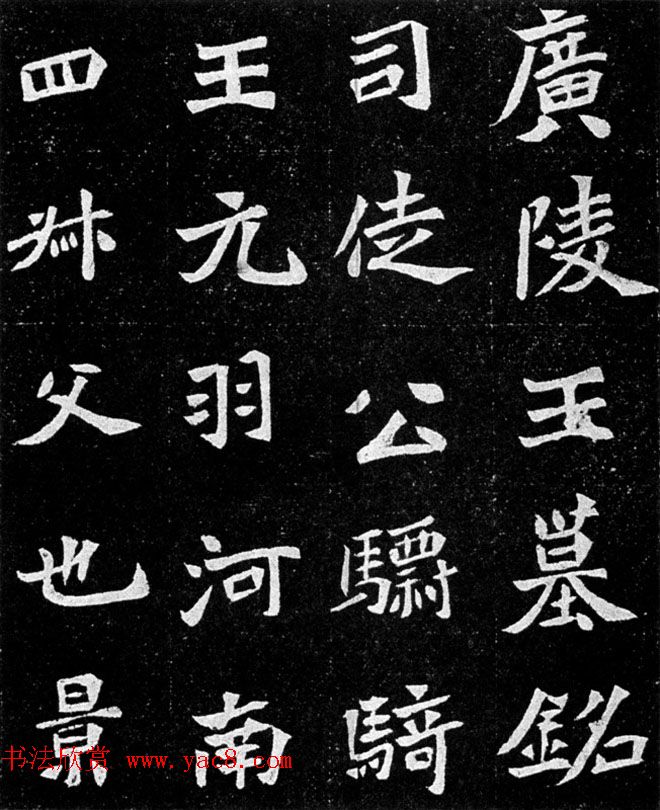 廣陵王墓銘
司徒公驃騎
王元羽河南
四叔父也景
书法欣赏 www.yac8.com